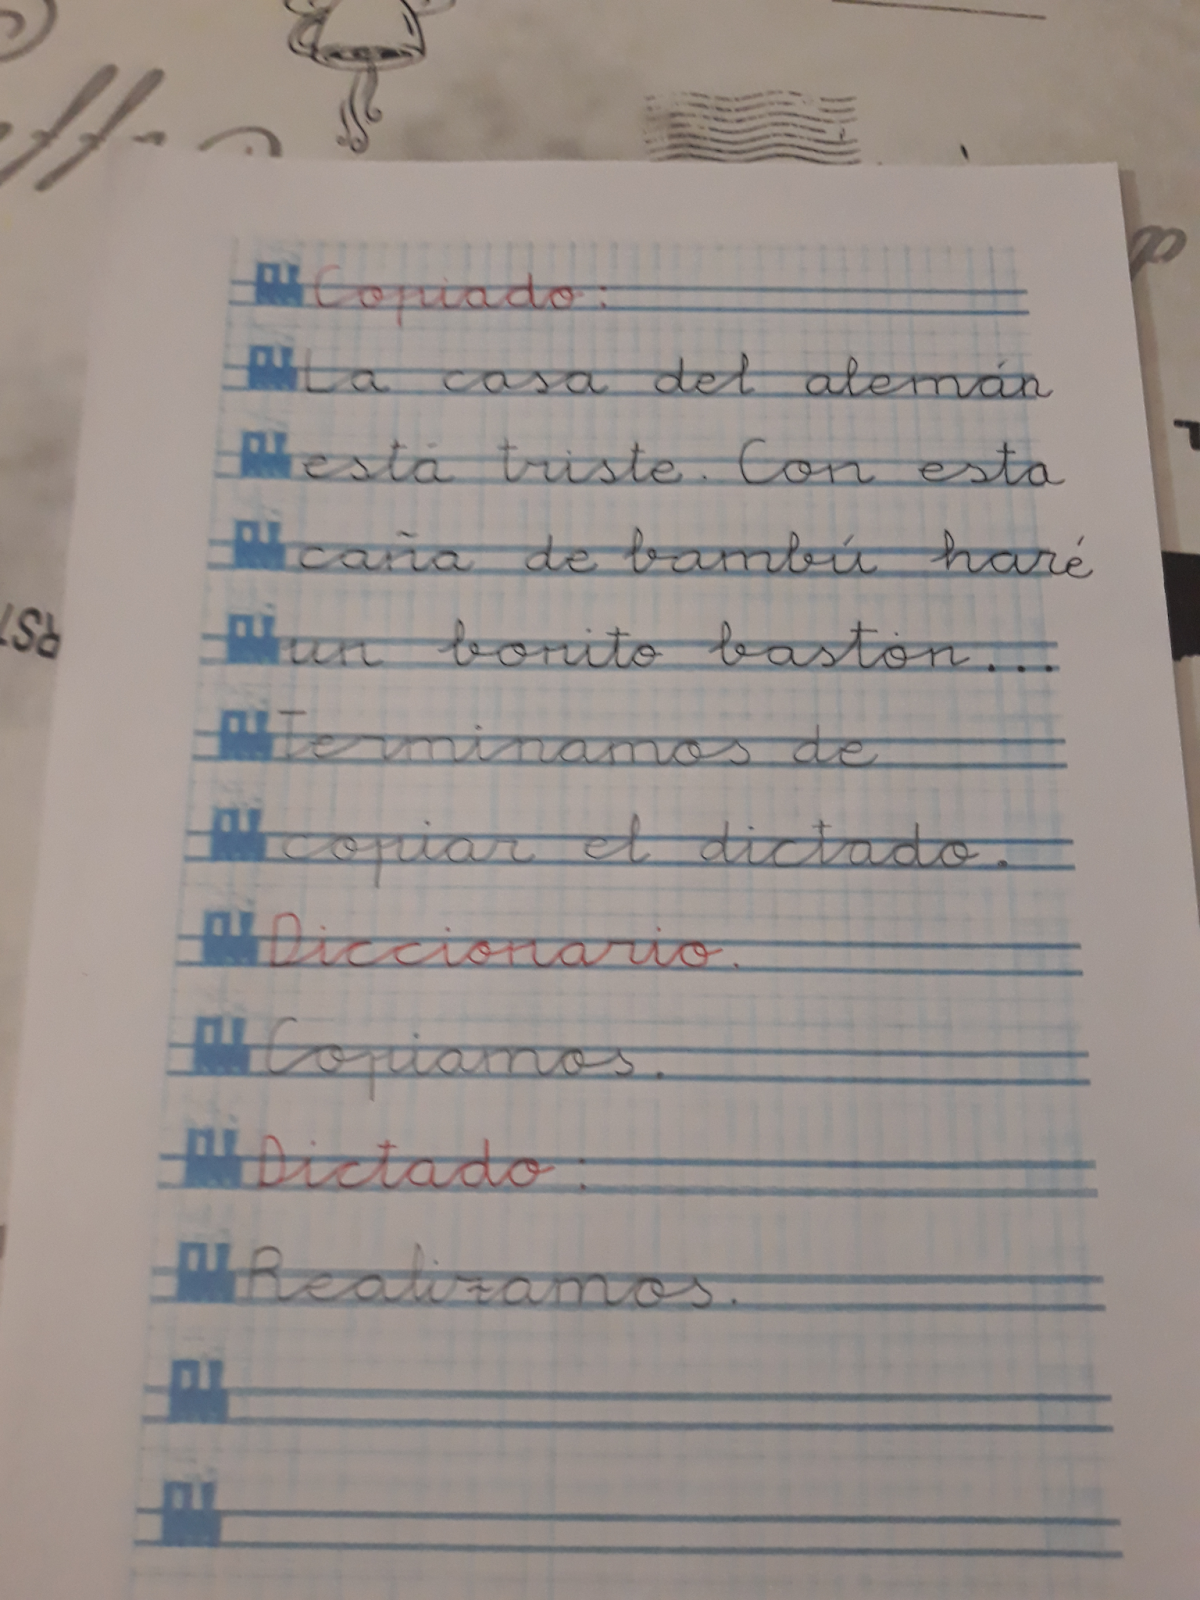 Copiado:
La casa del alemán
está triste. Con esta
caña de bambú haré
un bonito bastón...
Terminamos de
copiar el dictado.
Diccionario.
Copiamos.
Dictado:
Realizamos.